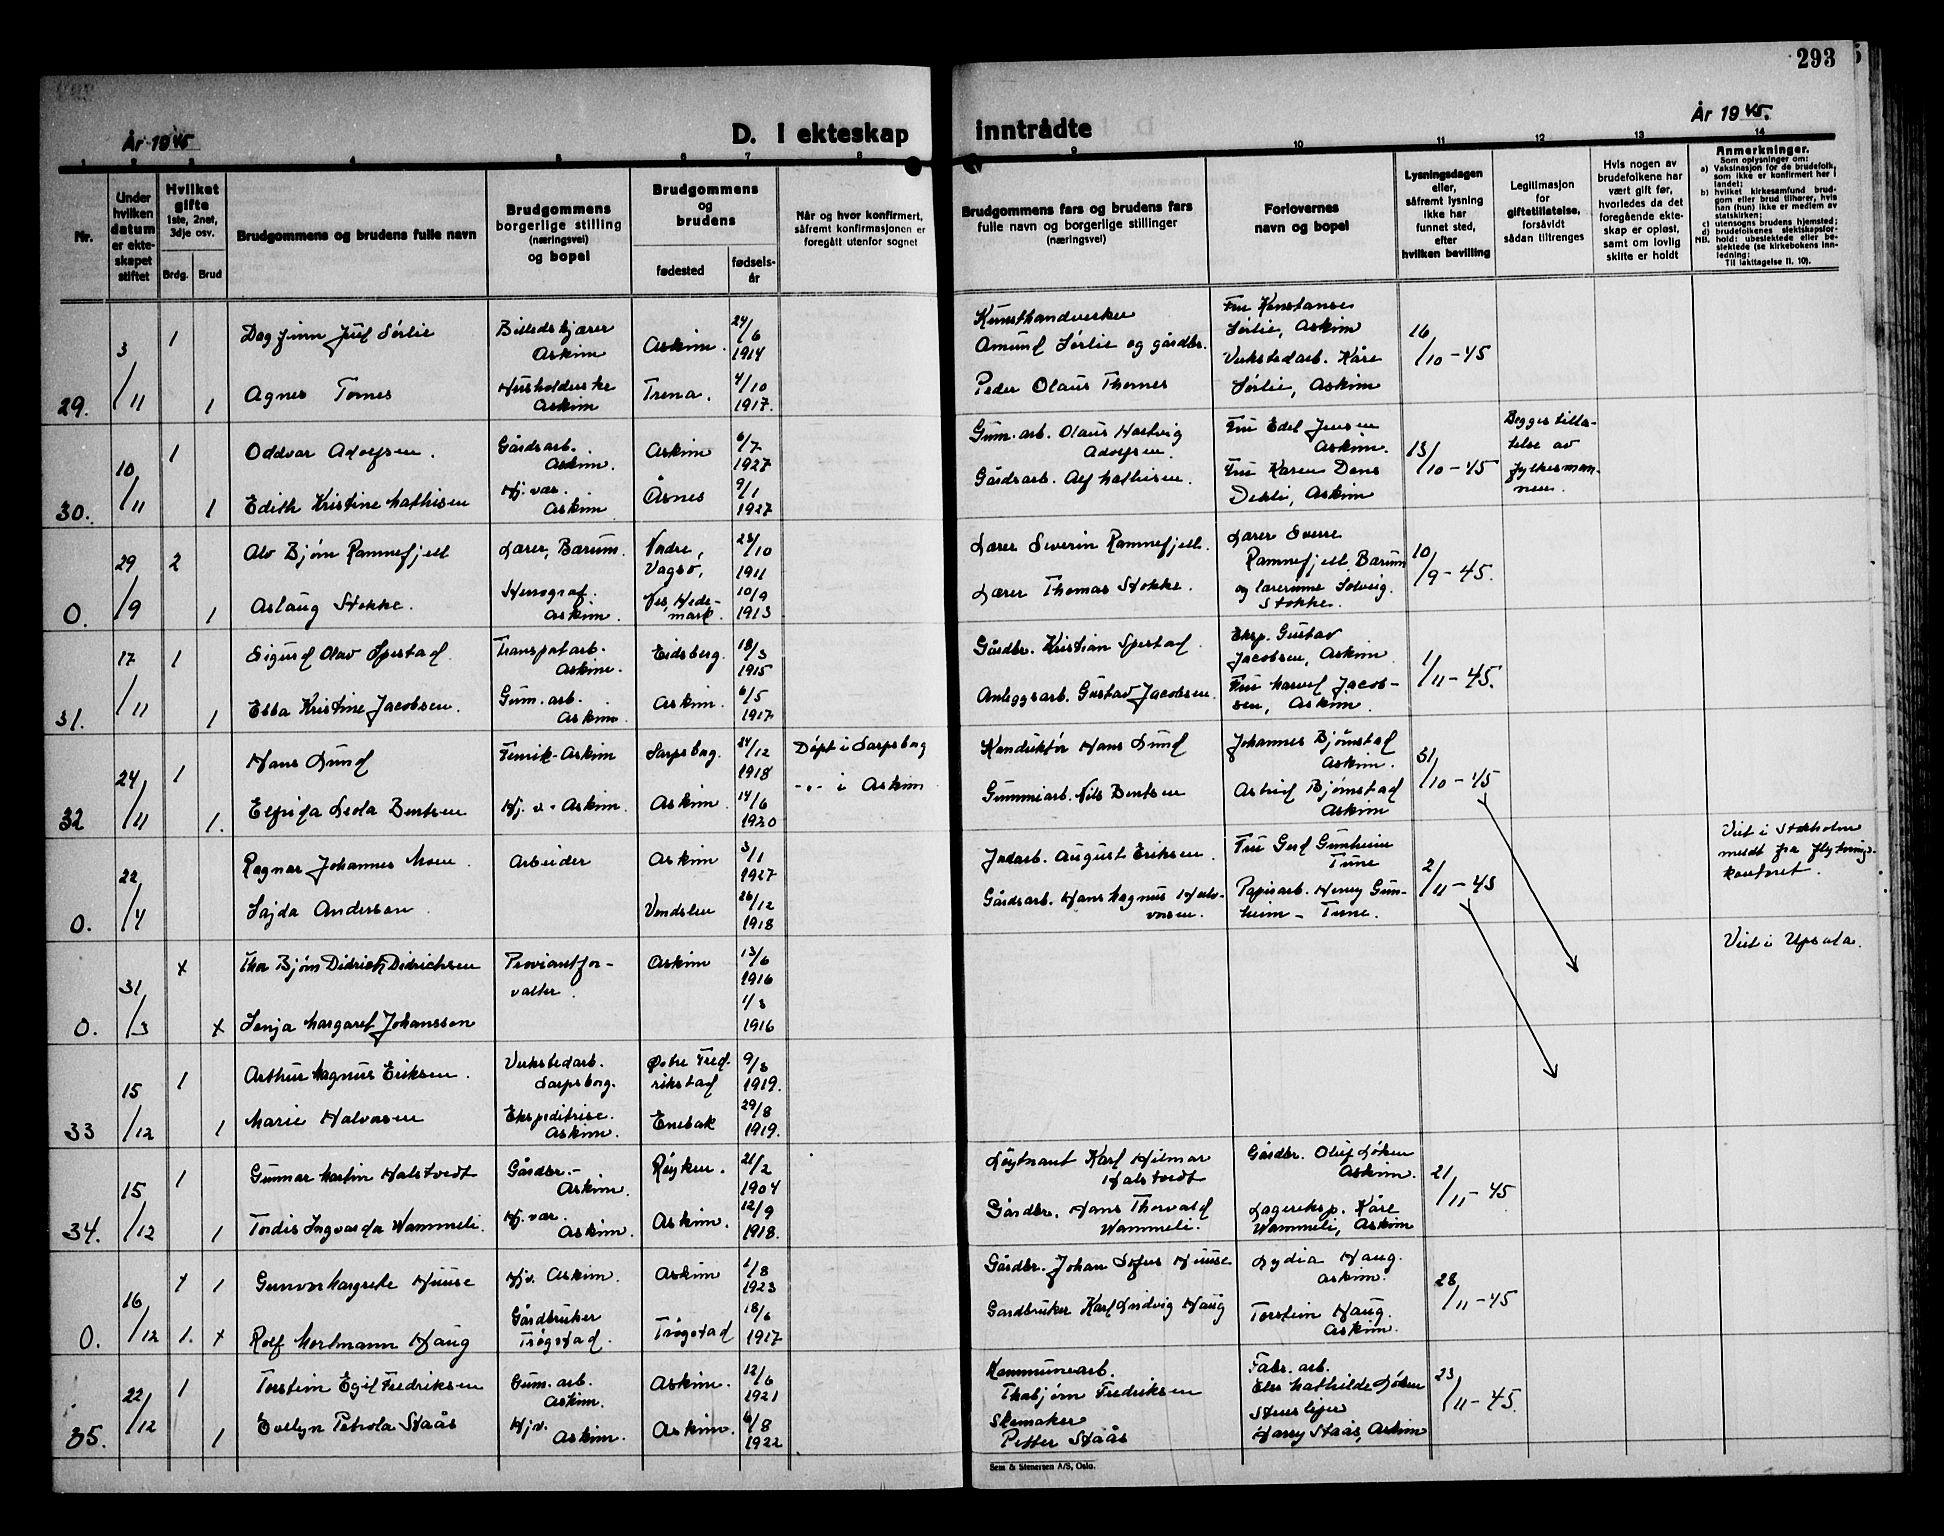 293
År 1945
D. I ekteskap inntrådte
År 1945.
1 2 3 4 5 6 7 8 9 10 11 12 13 14
Nr.
Under hvilken datum er ekteskapet stiftet
Hvilket gifte
1ste, 2net, 3dje osv.
Brdg. Brud
Brudgommens og brudens fulle navn
Brudgommens borgerlige stilling (næringsvei) og bopel
Brudgommens og brudens
fødested
fødselsår
Når og hvor konfirmert, såfremt konfirmasjonen er foregått utenfor sognet
Brudgommens fars og brudens fars fulle navn og borgerlige stillinger (næringsvei)
Forlovernes navn og bopel
Lysningsdagen eller, såfremt lysning ikke har funnet sted, efter hvilken bevilling
Legitimasjon for giftetillatelse, forsåvidt sådan tiltrenges
Hvis nogen av brudefolkene har vært gift før, hvorledes da det foregående ekteskap er opløst, samt om lovlig skifte er holdt
Anmerkninger.
Som oplysninger om:
a) Vaksinasjon for de brudefolk, som ikke er konfirmert her i landet;
b) hvilket kirkesamfund brudgom eller brud tilhører, hvis han (hun) ikke er medlem av statskirken;
c) utensogns brudens hjemsted;
d) brudefolkenes slektskapsforhold: ubeslektede eller beslektede (se kirkebokens innledning:
NB.
Til iakttagelse II. 10).
29. 3/11 1 Dagfinn Juul Sørlie Billedskjærer Askim Askim. 24/6 1914 Kunsthandverker Amund Sørlie og gårdbr. Fru Konstanse Sørlie, Askim 16/10-45
1 Agnes Tornes Husholderske Askim Trena. 4/10 1917. Peder Olaus Thornes Verkstedarb. Kåre Sørlie, Askim
30. 10/11 1 Oddvar Adolfsen. Gårdsarb. Askim. Askim 6/7 1927 Gum.arb. Olaus Hartvig Adolfsen. Fru Edel Jensen Askim. 13/10-45 Begges tillatelse av fylkesmannen.
1 Edith Kristine Mathisen Hj.vær. Askim Åsnes 9/1 1927 Gårdsarb. Alf Mathisen. Fru Karen Dons Dehli, Askim
0. 29/9 2 Alv Bjørn Ramnefjell Lærer, Bærum. Nordre, Vågsø, 23/10 1911 Lærer Severin Ramnefjell. Lærer Sverre Ramnefjell, Bærum 10/9-45.
1 Aslaug Stokke. Stenograf. Askim. Nes, Hedemark. 10/9 1913 Lærer Thomas Stokke. og lærerinne Solveig Stokke.
31. 17/11 1 Sigurd Olav Spestad. Transportarb. Askim. Eidsberg. 18/3 1915 Gårdbr. Kristian Spestad. Eksp. Gustav Jacobsen, Askim 1/11-45.
1 Ebba Kristine Jacobsen. Gum.arb. Askim. Askim. 6/5 1917 Anleggsarb. Gustav Jacobsen. Fru Jacobsen, Askim.
32 24/11 1 Hans Lund Fenrik-Askim Sarpsborg. 24/12 1918 Døpt i Sarpsborg Konduktør Hans Lund Johannes Bjørnstad Askim. 31/10-45
1. Elfrida Leola Bentsen Hj.v.-Askim. Askim. 14/6 1920 -"- i Askim Gummiarb. Nils Bentsen Astrid Bjørnstad Askim
0. 22/4 Ragnar Johannes Moen. Arbeider Askim 3/1 1927 Jodarb. August Eriksen. Fru Gerd Gunheim Tune 2/11-45 Viet i Stockholm meldt fra flyktningskontoret.
Sajda Anderson. Vendslen 26/12 1918 Gårdsarb. Hans Magnus Halvorsen. Papirarb. Henry Gunheim - Tune.
0. 31/3 x Thor Bjørn Didrich Didrichsen Proviantforvalter. Askim 13/6 1916 Viet i Upsala.
x Senja Margaret Johansson 1/3 1916
33 15/12 1 Arthur Magnus Eriksen. Verkstedarb. Sarpsborg. Østre Fredrikstad 9/3 1919.
1 Marie Halvorsen Ekspeditrise. Askim. Enebak 29/8 1919.
34. 15/12 1 Gunnar Martin Halstvedt Gårdbr.- Askim. Røyken. 21/2 1904 Løytnant Karl Hilmar Halstvedt Gårdbr. Oluf Løken Askim. 21/11-45
1 Tordis Ingvarda Wammeli. Hj.vær. Askim. Askim. 12/9 1918. Gårdbr. Hans Thorvald Wammeli. Lagereksp. Kåre Wammeli, Askim
0. 16/12 x 1 Gunvor Margrete Huuse Hjv. Askim. Askim 1/8 1923 Gårdbr. Johan Sofus Huuse Lydia Haug. Askim. 28/11-45
1. x Rolf Mortmann Haug Gårdbruker Trøgstad. Trøgstad 18/6 1917 Gardbruker Karl Ludvig Haug Torstein Haug. Askim.
35. 22/12 1 Torstein Egil Fredriksen Gum.arb. Askim. Askim. 12/6 1921 Kommunearb. Thorbjørn Fredriksen Fabr.arb. Else Mathilde Løken 23/11-45.
1 Evelyn Petrola Staås Hjv. Askim. Askim. 6/8 1922 Skomaker Petter Staås Harry Staås, Askim
Sem & Stenersen A/S, Oslo.